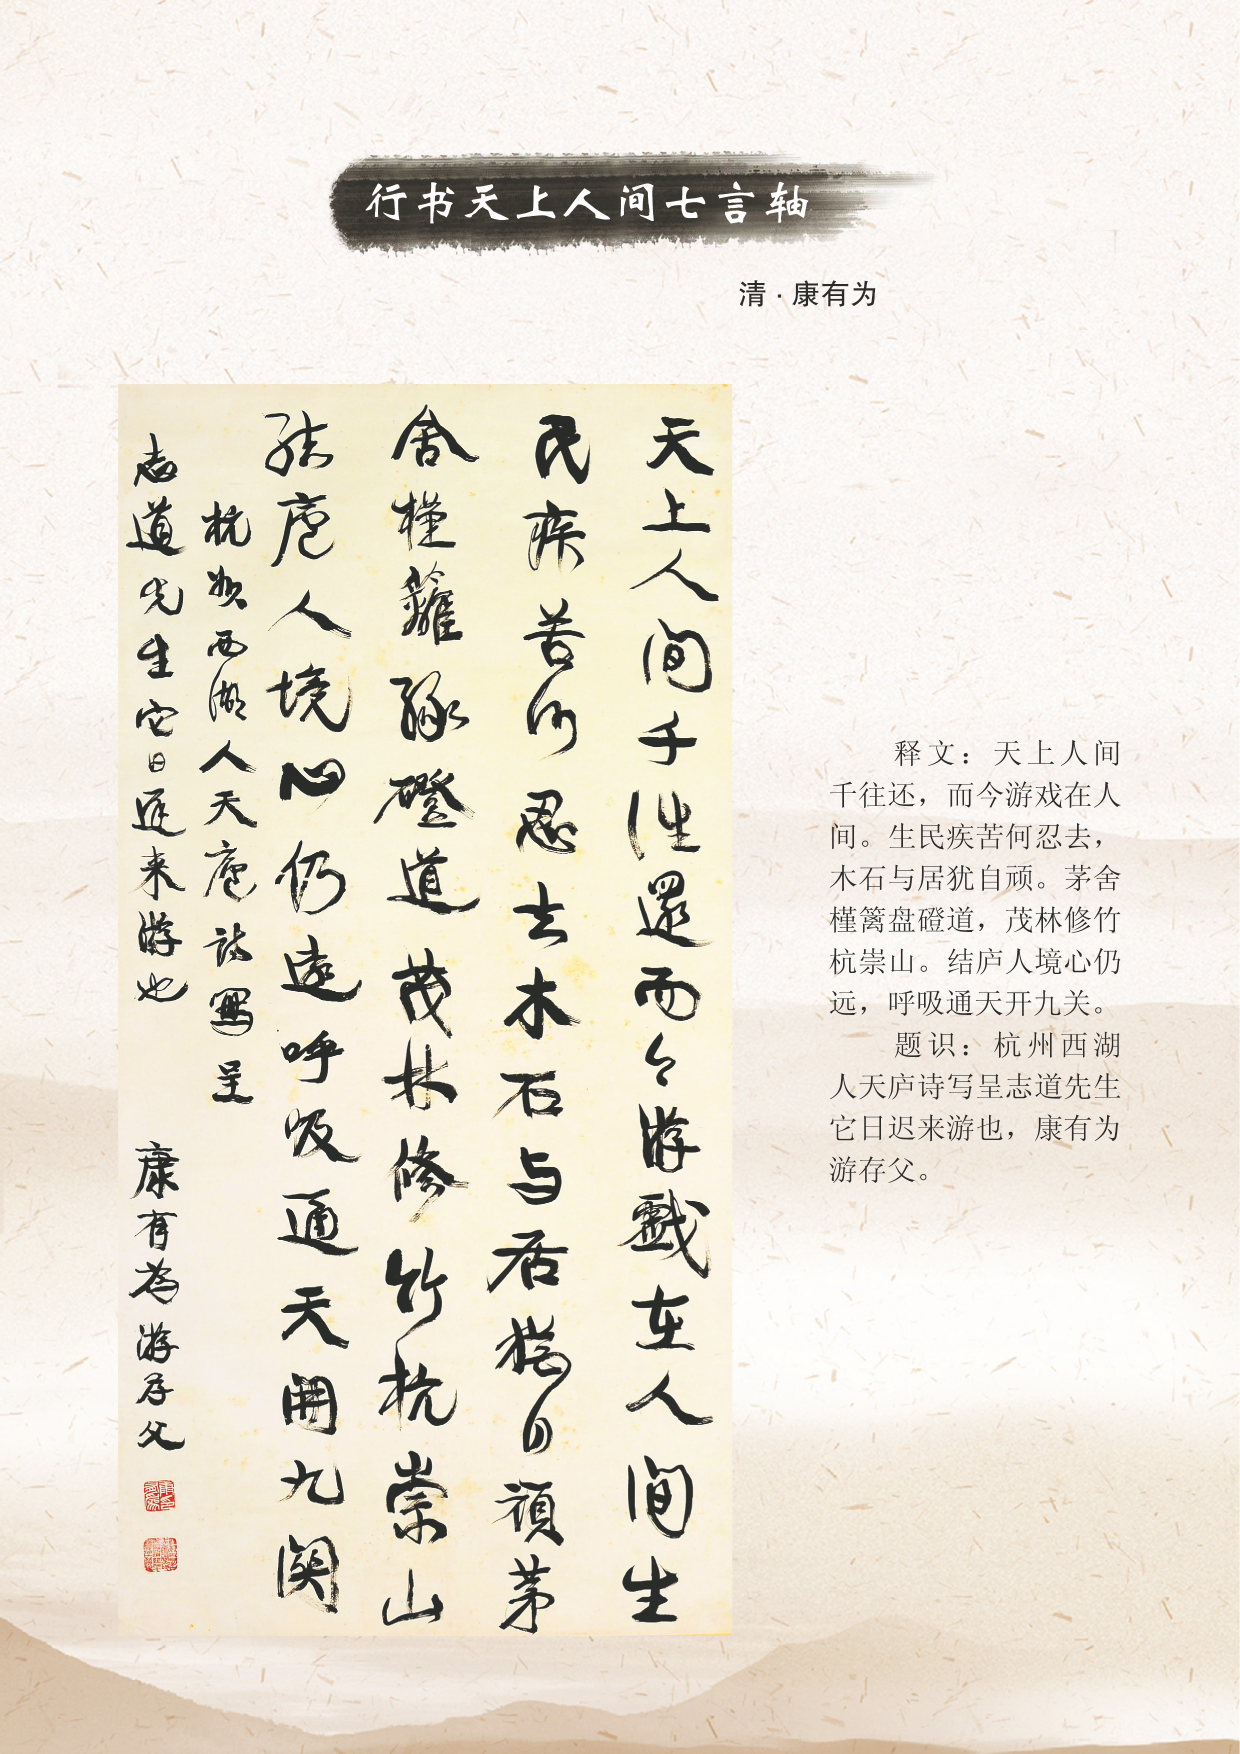 行书天上人间七言轴
清·康有为
天上人间千往還而今游戲在人间生
民疾苦何忍去木石与居犹自頑茅
舍槿籬盤磴道茂林修竹杭崇山
结庐人境心仍遠呼吸通天開九関
杭州西湖人天庐诗寫呈
志道先生它日迟来游也
康有为游存父
释文：天上人间
千往还，而今游戏在人
间。生民疾苦何忍去，
木石与居犹自顽。茅舍
槿篱盘磴道，茂林修竹
杭崇山。结庐人境心仍
远，呼吸通天开九关。
题识：杭州西湖
人天庐诗写呈志道先生
它日迟来游也，康有为
游存父。